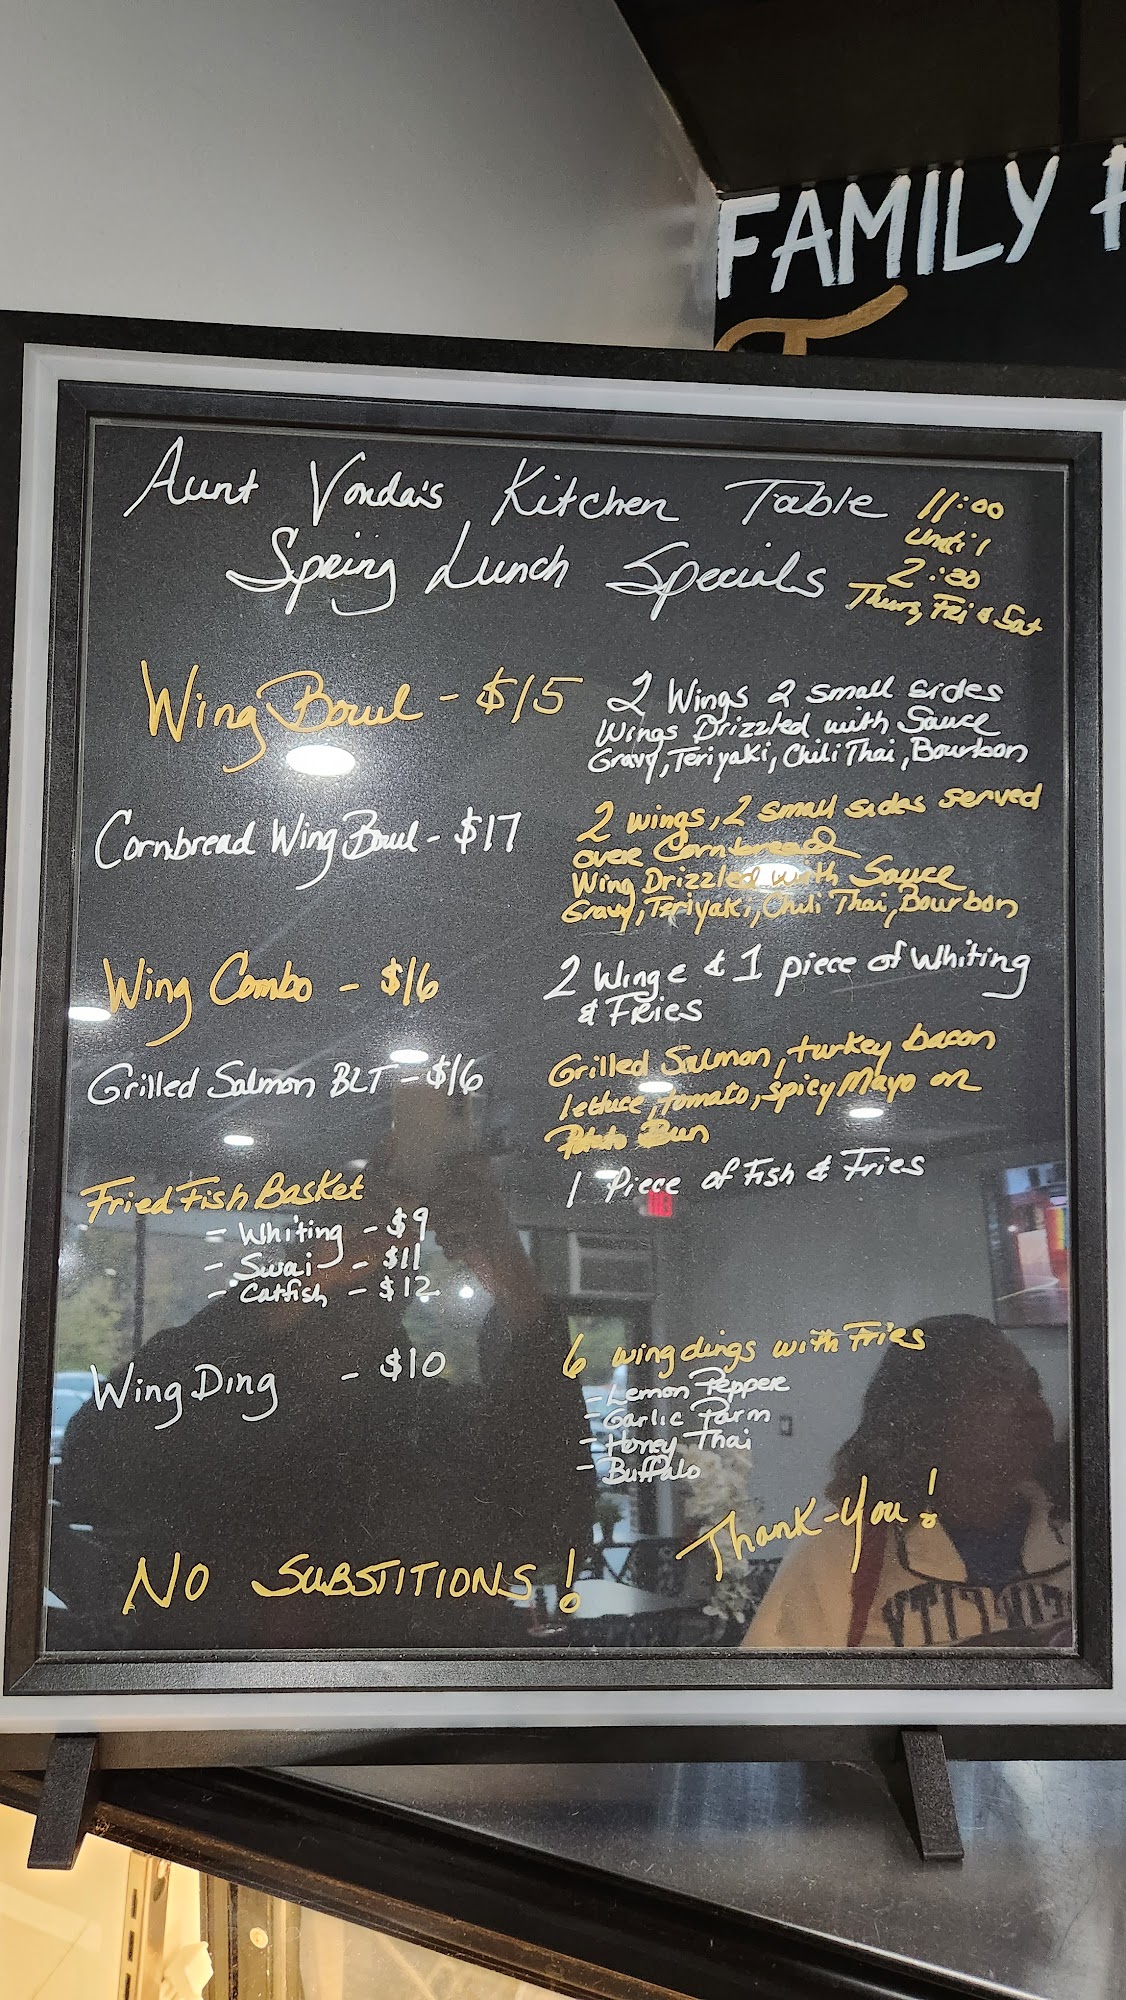 FAMILY
Aunt Vonda's Kitchen Table
Spring Lunch Specials
11:00
until
2:30
Thurs, Fri & Sat
Wing Bowl - $15
2 Wings 2 small sides
Wings Drizzled with Sauce
Gravy, Teriyaki, Chili Thai, Bourbon
Cornbread Wing Bowl - $17
2 wings, 2 small sides served
over Cornbread
Wing Drizzled with Sauce
Gravy, Teriyaki, Chili Thai, Bourbon
Wing Combo - $16
2 Wings & 1 piece of Whiting
& Fries
Grilled Salmon BLT - $16
Grilled Salmon, turkey bacon
lettuce, tomato, spicy Mayo on
Potato Bun
Fried Fish Basket
1 Piece of Fish & Fries
- Whiting - $9
- Swai - $11
- Catfish - $12
Wing Ding - $10
6 wing dings with Fries
- Lemon Pepper
- Garlic Parm
- Honey Thai
- Buffalo
Thank-You!
NO SUBSTITIONS!